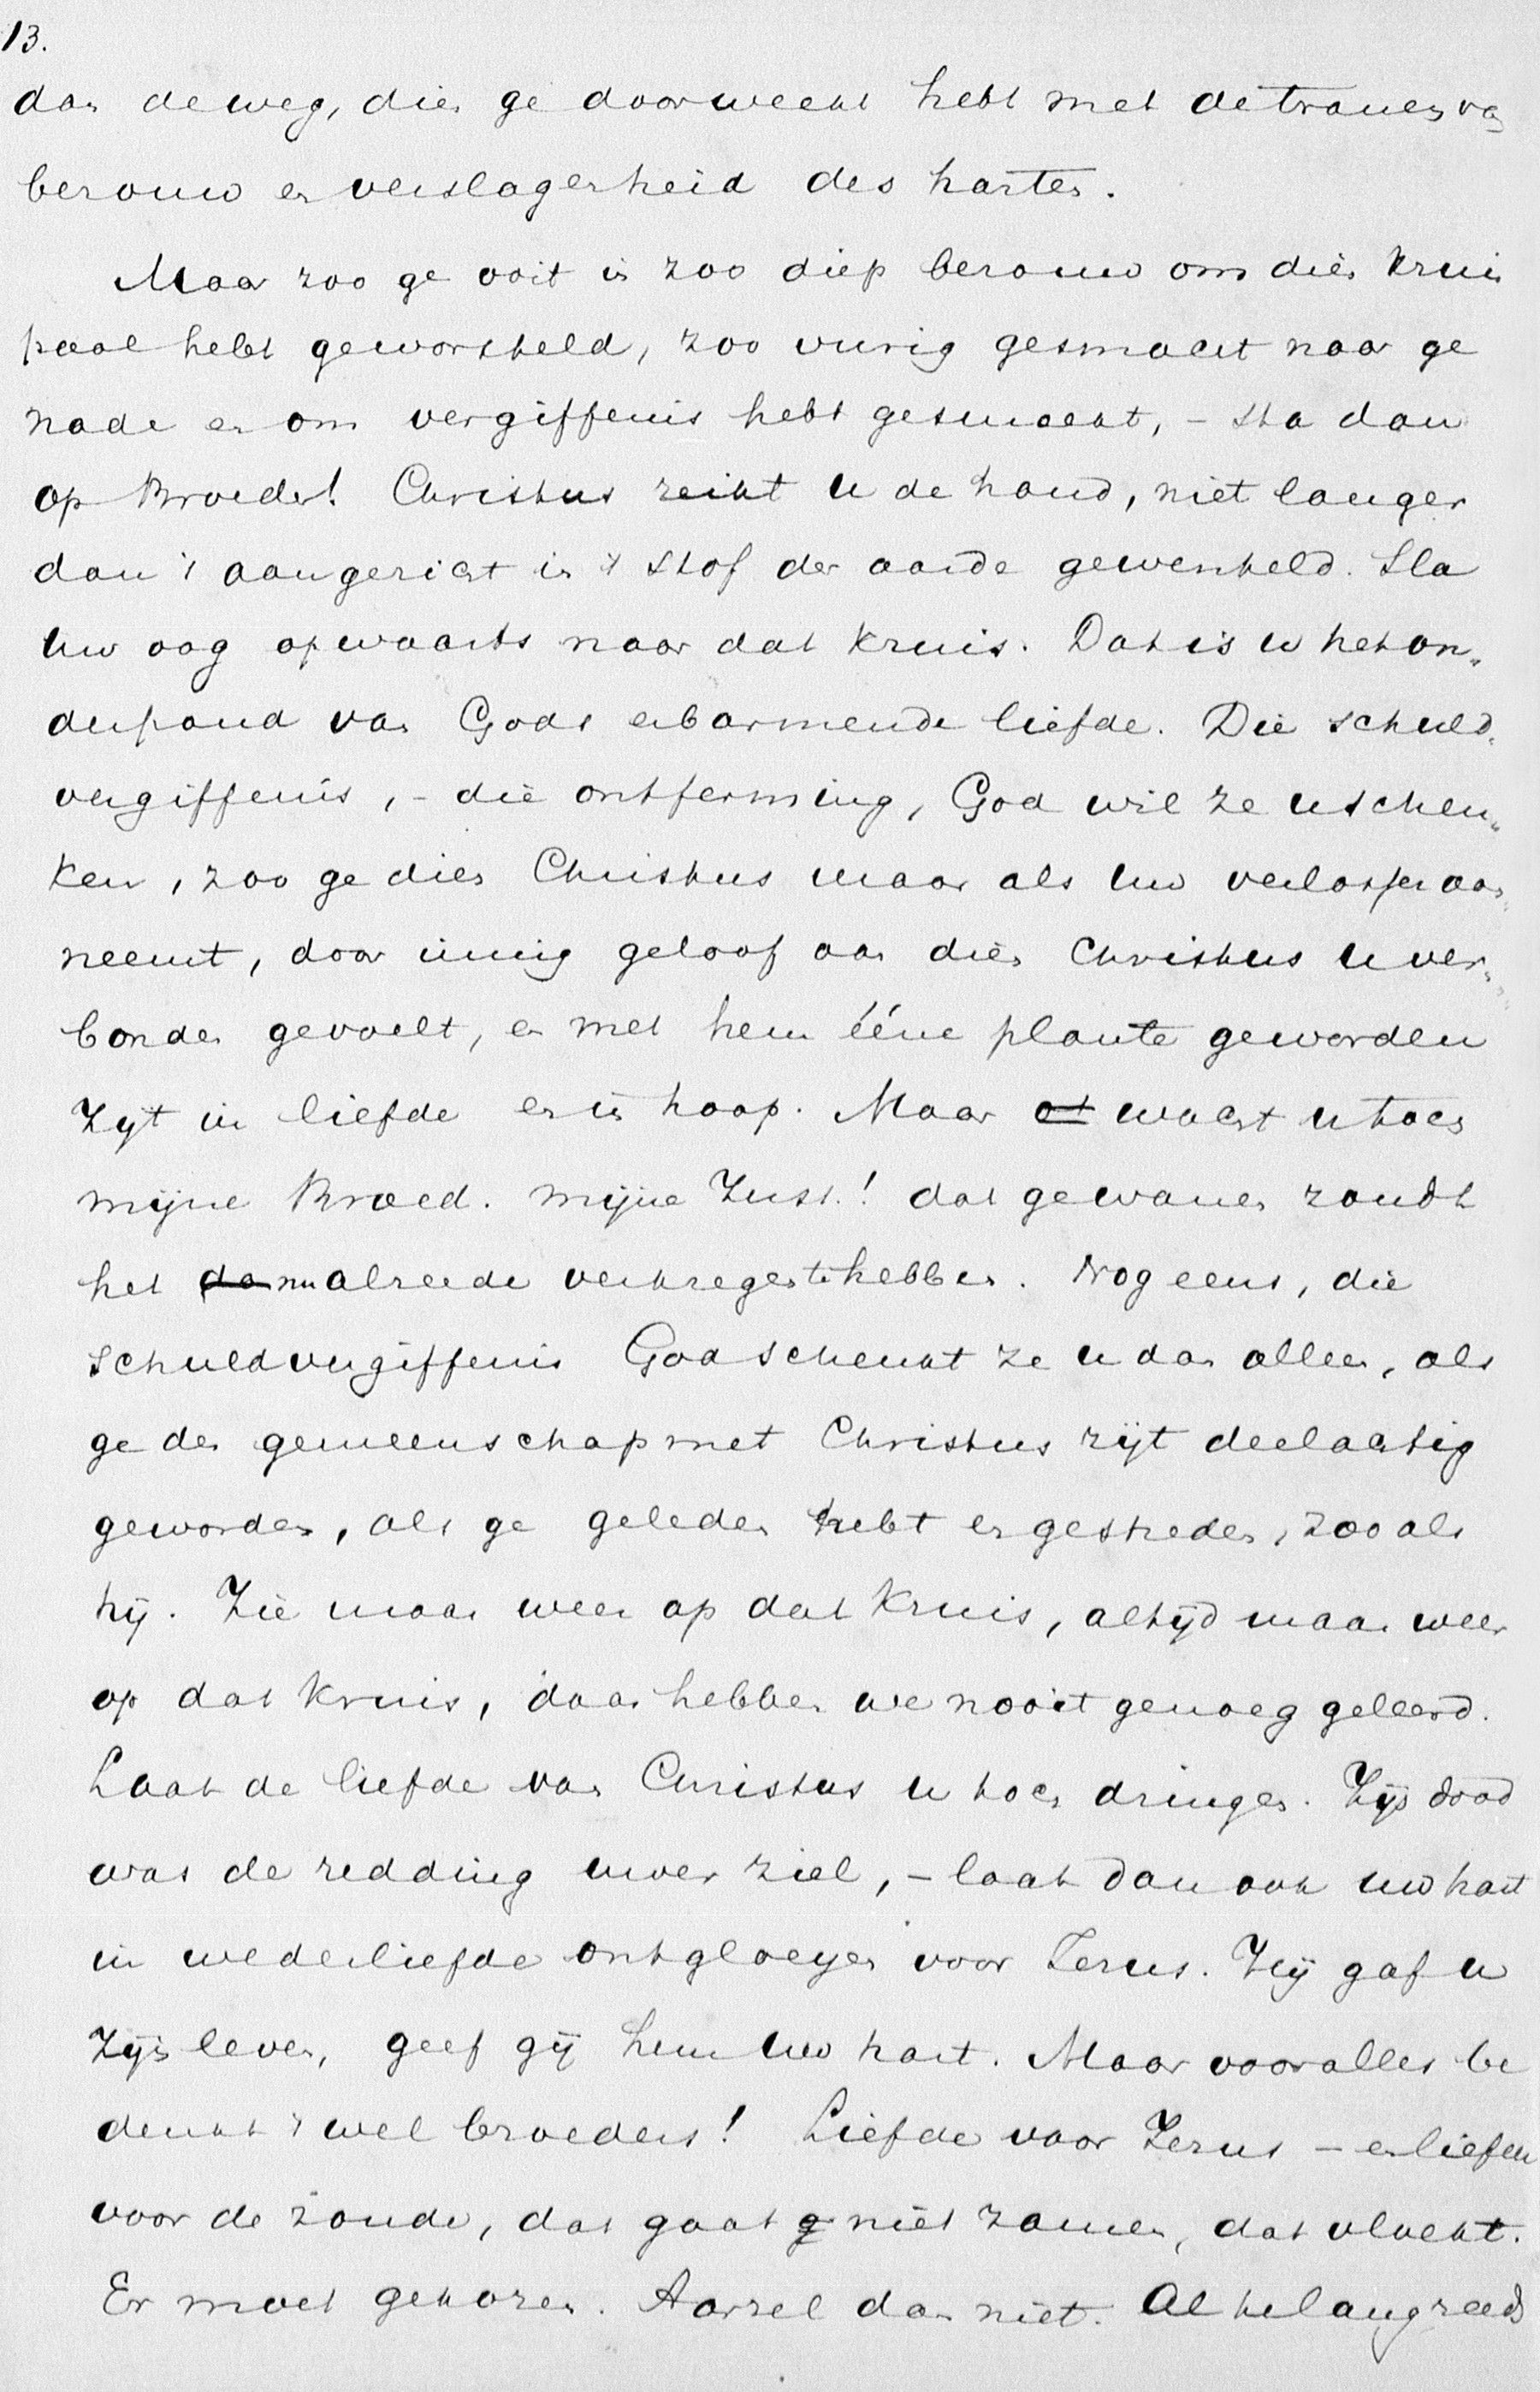 13.
dan de weg, dien ge doorweekt hebt met de tranen van
berouw en verslagenheid des harten.
Maar zoo ge ooit in zoo diep berouw om dien kruis
paal hebt geworsteld, zoo vurig gesmacht naar ge
nade en om vergiffenis hebt gesmeekt, – sta dan
op Broeder! Christus reikt u de hand, niet langer
dan 't aangezicht in 't stof der aarde gewenteld. Sla
uw oog opwaarts naar dat kruis. Dat is u het on„
derpand van Gods erbarmende liefde. Die schuld„
vergiffenis, – die ontferming, God wil ze u schen„
ken, zoo ge dien Christus maar als uw verlosser aan„
neemt, door innig geloof aan dien Christus u ver„
bonden gevoelt, en met hem ééne plante geworden
zijt in liefde en in hoop. Maar wacht u toch
mijne Broed. mijne Zust.! dat ge wanen zoudt
het nu alreede verkregen te hebben. Nog eens, die
schuldvergiffenis God schenkt ze u dan alleen, als
ge der gemeenschap met Christus zijt deelachtig
geworden, als ge geleden hebt en gestreden, zoo als
hij. Zie maar weer op dat kruis, altijd maar weer
op dat kruis, daar hebben we nooit genoeg geleerd.
Laat de liefde van Christus u toch dringen. Zijn dood
was de redding uwer ziel, – laat dan ook uw hart
in wederliefde ontgloeijen voor Jezus. Hij gaf u
Zijn leven, geef gij hem uw hart. Maar voor alles be
denkt 't wel broeders! Liefde voor Jezus – en liefde
voor de zonde, dat gaat niet zamen, dat vloekt.
Er moet gekozen. Aarzel dan niet. Al te lang reeds